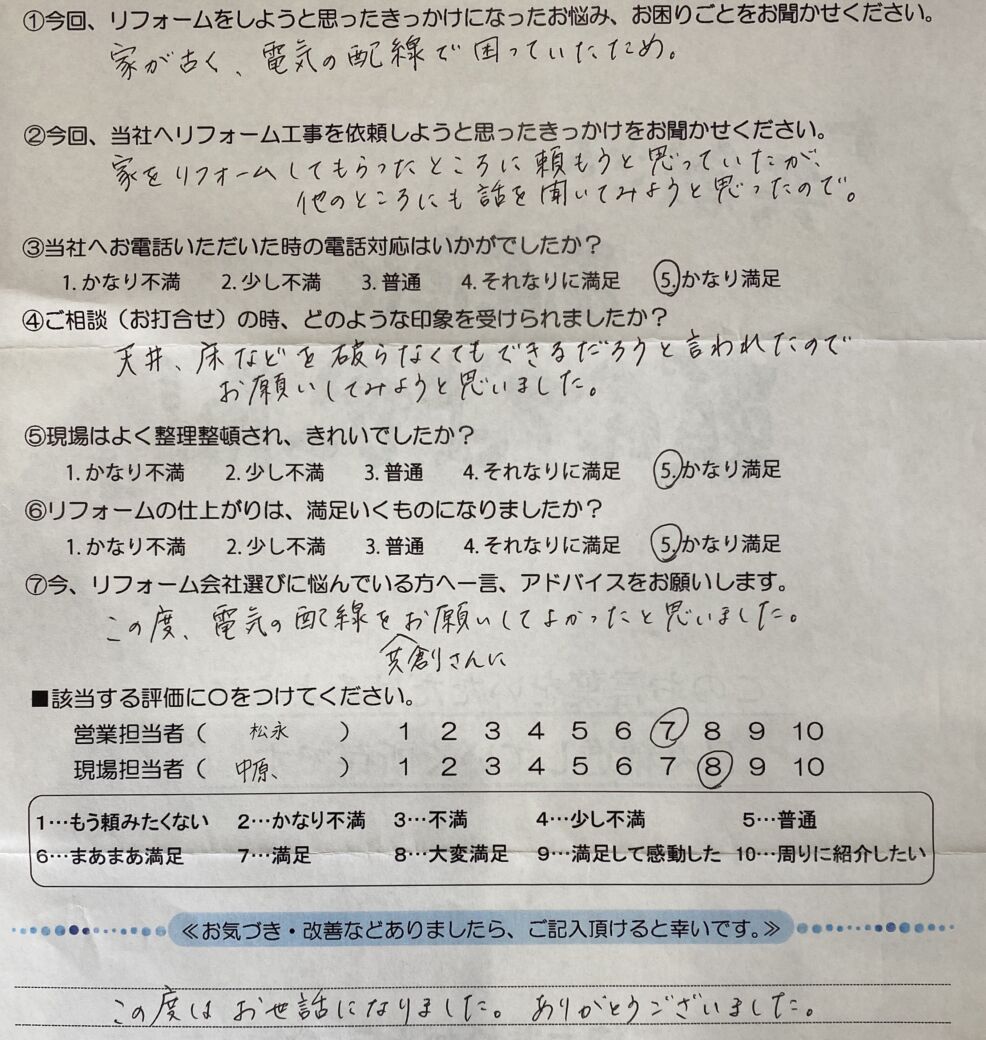 ①今回、リフォームをしようと思ったきっかけになったお悩み、お困りごとをお聞かせください。
家が古く、電気の配線で困っていたため。
②今回、当社へリフォーム工事を依頼しようと思ったきっかけをお聞かせください。
家をリフォームしてもらったところに頼もうと思っていたが、
他のところにも話を聞いてみようと思ったので。
③当社へお電話いただいた時の電話対応はいかがでしたか？
1. かなり不満 2. 少し不満 3. 普通 4. それなりに満足 5. かなり満足
④ご相談（お打合せ）の時、どのような印象を受けられましたか？
天井、床などを破らなくてもできるだろうと言われたので
お願いしてみようと思いました。
⑤現場はよく整理整頓され、きれいでしたか？
1. かなり不満 2. 少し不満 3. 普通 4. それなりに満足 5. かなり満足
⑥リフォームの仕上がりは、満足いくものになりましたか？
1. かなり不満 2. 少し不満 3. 普通 4. それなりに満足 5. かなり満足
⑦今、リフォーム会社選びに悩んでいる方へ一言、アドバイスをお願いします。
この度、電気の配線をお願いしてよかったと思いました。
共創さんに
■該当する評価に〇をつけてください。
営業担当者（ 松永 ） 1 2 3 4 5 6 7 8 9 10
現場担当者（ 中原、 ） 1 2 3 4 5 6 7 8 9 10
1…もう頼みたくない 2…かなり不満 3…不満 4…少し不満 5…普通
6…まあまあ満足 7…満足 8…大変満足 9…満足して感動した 10…周りに紹介したい
≪お気づき・改善などありましたら、ご記入頂けると幸いです。≫
この度はお世話になりました。ありがとうございました。